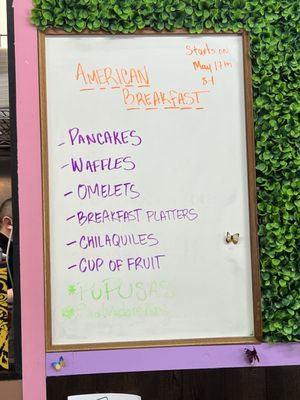 Starts on
May 17th
AMERICAN
BREAKFAST
- PANCAKES
- WAFFLES
- OMELETS
- BREAKFAST PLATTERS
- CHILAQUILES
- CUP OF FRUIT
* PUPUSAS